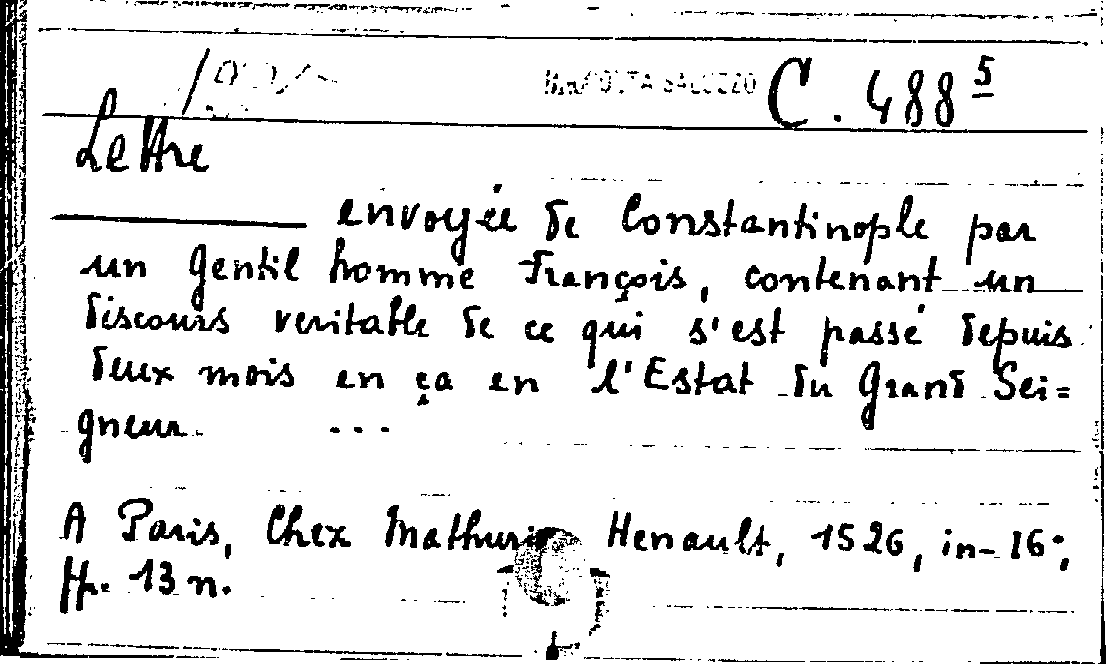 C. 488⁵
Lettre
envoyée de Constantinople par
un Gentil homme François, contenant un
discours veritable de ce qui s'est passé depuis
deux mois en ça en l'Estat du Grand Sei=
gneur ...
A Paris, Chez Mathurin Henault, 1526, in-16°,
ff. 13 n.